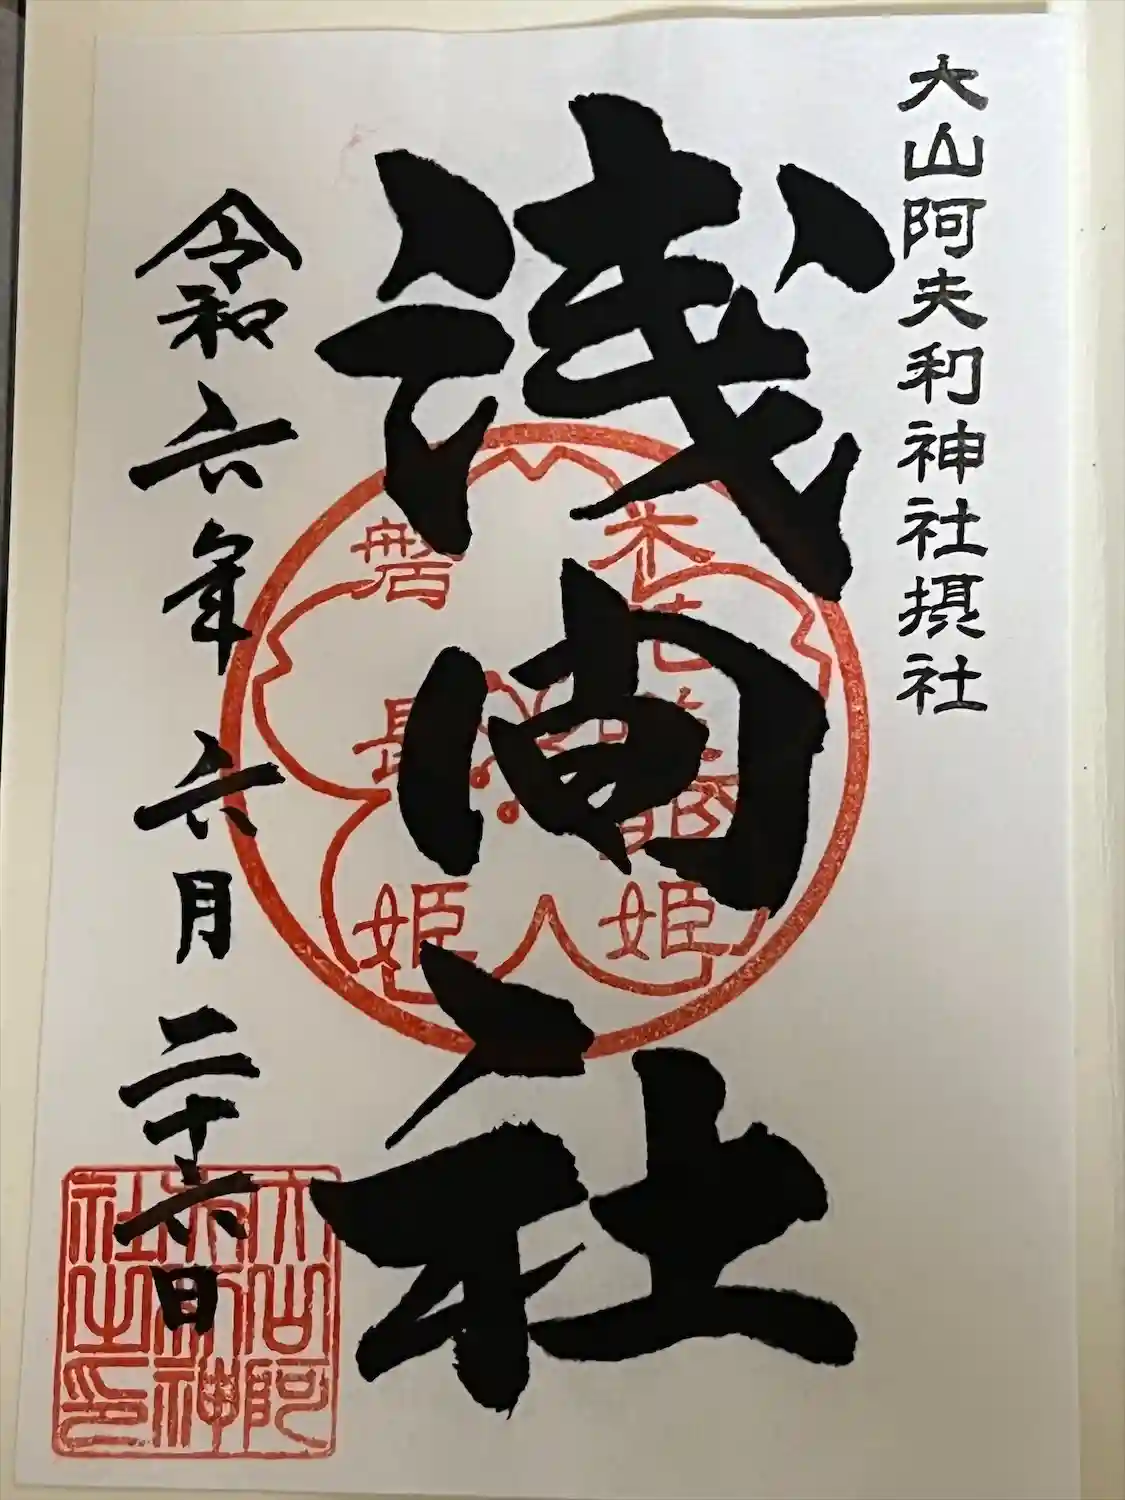 大山阿夫利神社摂社
浅間社
木花咲耶姫
磐長姫
令和六年六月二十六日
大山阿
夫利神
社之印